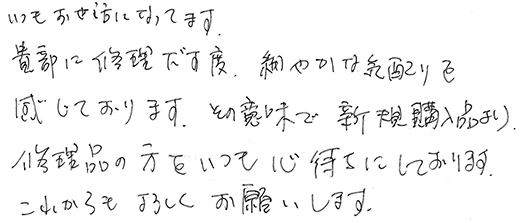 いつもお世話になってます.
貴部に修理だす度. 細やかな気配りを
感じております. その意味で新規購入品より.
修理品の方をいつも心待ちにしております.
これからもよろしくお願いします.